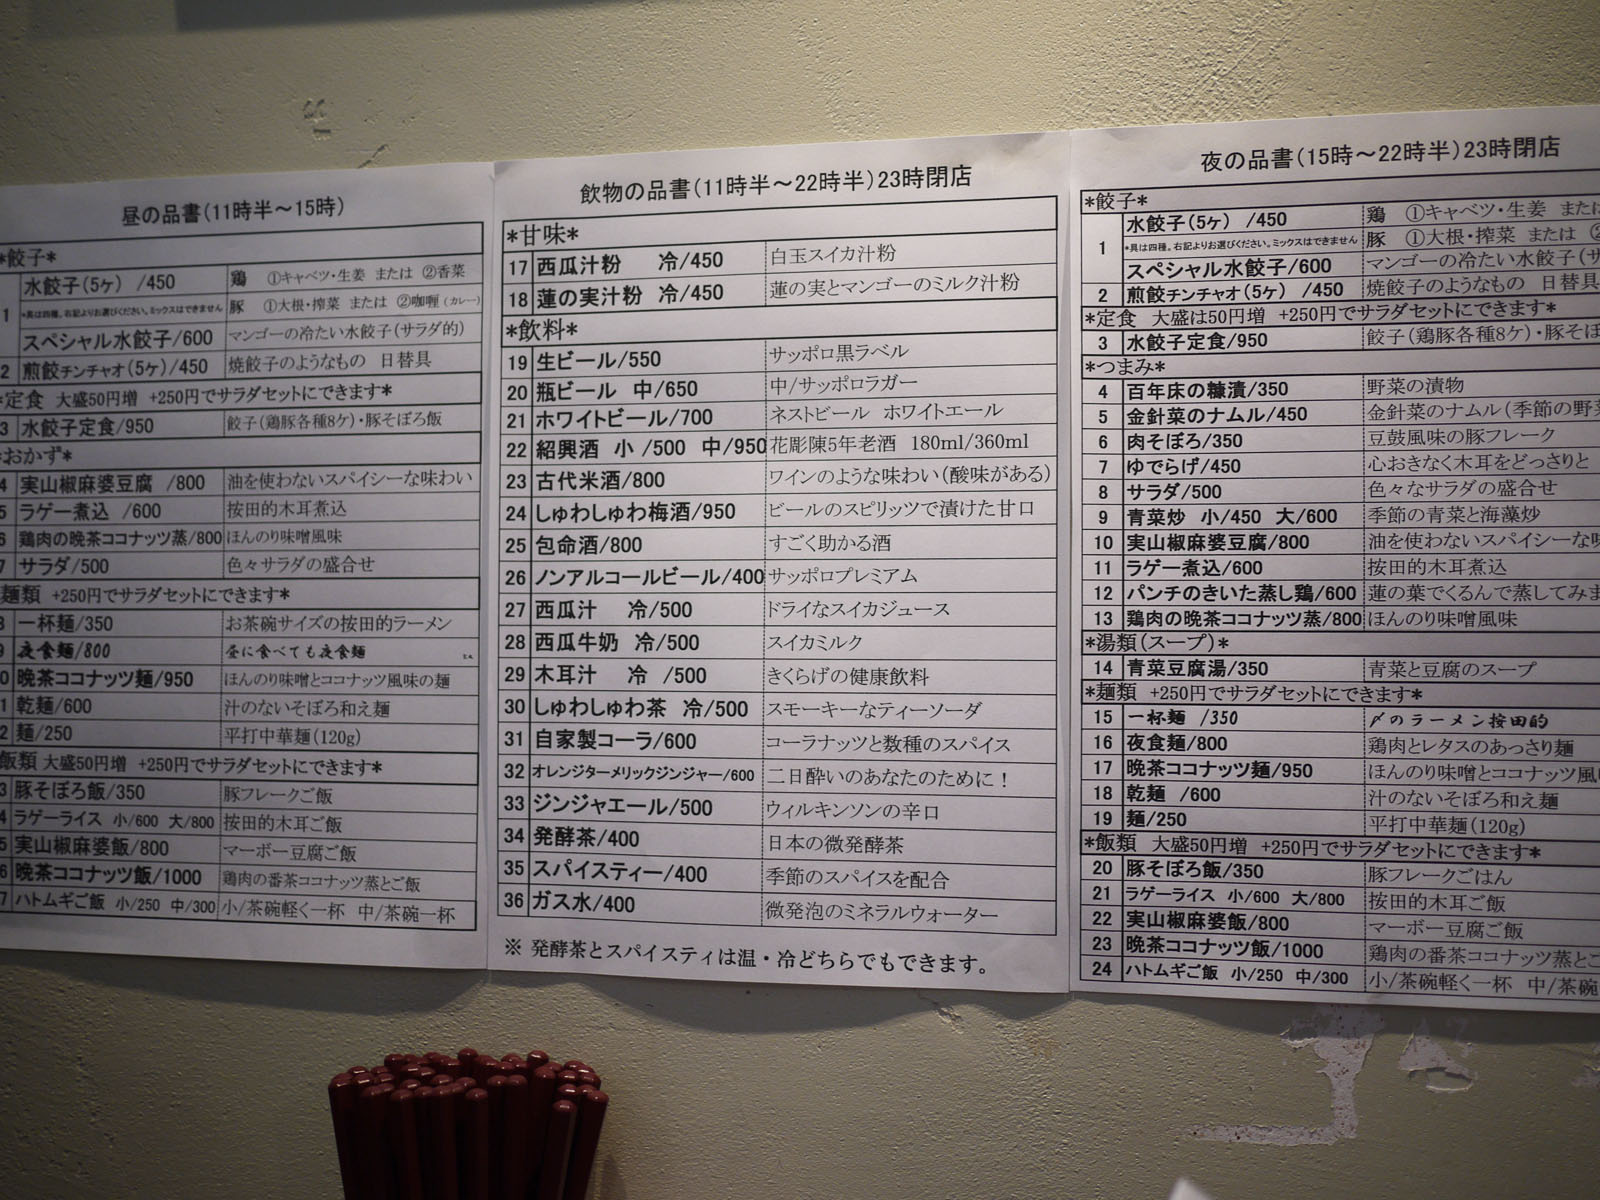 昼の品書(11時半～15時)
*餃子*
1 水餃子(5ヶ) /450 鶏 ①キャベツ・生姜 または ②香菜
*具は四種。右記よりお選びください。ミックスはできません 豚 ①大根・搾菜 または ②咖喱(カレー)
スペシャル水餃子/600 マンゴーの冷たい水餃子(サラダ的)
2 煎餃チンチャオ(5ヶ)/450 焼餃子のようなもの 日替具
*定食 大盛50円増 +250円でサラダセットにできます*
3 水餃子定食/950 餃子(鶏豚各種8ケ)・豚そぼろ飯
*おかず*
4 実山椒麻婆豆腐 /800 油を使わないスパイシーな味わい
5 ラゲー煮込 /600 按田的木耳煮込
6 鶏肉の晩茶ココナッツ蒸/800 ほんのり味噌風味
7 サラダ/500 色々サラダの盛合せ
麺類 +250円でサラダセットにできます*
8 一杯麺/350 お茶碗サイズの按田的ラーメン
9 夜食麺/800 昼に食べても夜食麺
0 晩茶ココナッツ麺/950 ほんのり味噌とココナッツ風味の麺
1 乾麺/600 汁のないそぼろ和え麺
2 麺/250 平打中華麺(120g)
飯類 大盛50円増 +250円でサラダセットにできます*
3 豚そぼろ飯/350 豚フレークご飯
4 ラゲーライス 小/600 大/800 按田的木耳ご飯
5 実山椒麻婆飯/800 マーボー豆腐ご飯
6 晩茶ココナッツ飯/1000 鶏肉の番茶ココナッツ蒸とご飯
7 ハトムギご飯 小/250 中/300 小/茶碗軽く一杯 中/茶碗一杯
飲物の品書(11時半～22時半)23時閉店
*甘味*
17 西瓜汁粉 冷/450 白玉スイカ汁粉
18 蓮の実汁粉 冷/450 蓮の実とマンゴーのミルク汁粉
*飲料*
19 生ビール/550 サッポロ黒ラベル
20 瓶ビール 中/650 中/サッポロラガー
21 ホワイトビール/700 ネストビール ホワイトエール
22 紹興酒 小 /500 中/950 花彫陳5年老酒 180ml/360ml
23 古代米酒/800 ワインのような味わい(酸味がある)
24 しゅわしゅわ梅酒/950 ビールのスピリッツで漬けた甘口
25 包命酒/800 すごく助かる酒
26 ノンアルコールビール/400 サッポロプレミアム
27 西瓜汁 冷/500 ドライなスイカジュース
28 西瓜牛奶 冷/500 スイカミルク
29 木耳汁 冷 /500 きくらげの健康飲料
30 しゅわしゅわ茶 冷/500 スモーキーなティーソーダ
31 自家製コーラ/600 コーラナッツと数種のスパイス
32 オレンジターメリックジンジャー/600 二日酔いのあなたのために！
33 ジンジャエール/500 ウィルキンソンの辛口
34 発酵茶/400 日本の微発酵茶
35 スパイスティー/400 季節のスパイスを配合
36 ガス水/400 微発泡のミネラルウォーター
※ 発酵茶とスパイスティは温・冷どちらでもできます。
夜の品書(15時～22時半)23時閉店
*餃子*
1 水餃子(5ケ) /450 鶏 ①キャベツ・生姜 または
*具は四種。右記よりお選びください。ミックスはできません 豚 ①大根・搾菜 または ②
スペシャル水餃子/600 マンゴーの冷たい水餃子(サ
2 煎餃チンチャオ(5ケ) /450 焼餃子のようなもの 日替具
*定食 大盛は50円増 +250円でサラダセットにできます*
3 水餃子定食/950 餃子(鶏豚各種8ケ)・豚そぼ
*つまみ*
4 百年床の糠漬/350 野菜の漬物
5 金針菜のナムル/450 金針菜のナムル(季節の野菜
6 肉そぼろ/350 豆鼓風味の豚フレーク
7 ゆでらげ/450 心おきなく木耳をどっさりと
8 サラダ/500 色々なサラダの盛合せ
9 青菜炒 小/450 大/600 季節の青菜と海藻炒
10 実山椒麻婆豆腐/800 油を使わないスパイシーな味
11 ラゲー煮込/600 按田的木耳煮込
12 パンチのきいた蒸し鶏/600 蓮の葉でくるんで蒸してみま
13 鶏肉の晩茶ココナッツ蒸/800 ほんのり味噌風味
*湯類(スープ)*
14 青菜豆腐湯/350 青菜と豆腐のスープ
*麺類 +250円でサラダセットにできます*
15 一杯麺 /350 〆のラーメン按田的
16 夜食麺/800 鶏肉とレタスのあっさり麺
17 晩茶ココナッツ麺/950 ほんのり味噌とココナッツ風
18 乾麺 /600 汁のないそぼろ和え麺
19 麺/250 平打中華麺(120g)
*飯類 大盛50円増 +250円でサラダセットにできます*
20 豚そぼろ飯/350 豚フレークごはん
21 ラゲーライス 小/600 大/800 按田的木耳ご飯
22 実山椒麻婆飯/800 マーボー豆腐ご飯
23 晩茶ココナッツ飯/1000 鶏肉の番茶ココナッツ蒸とご
24 ハトムギご飯 小/250 中/300 小/茶碗軽く一杯 中/茶碗